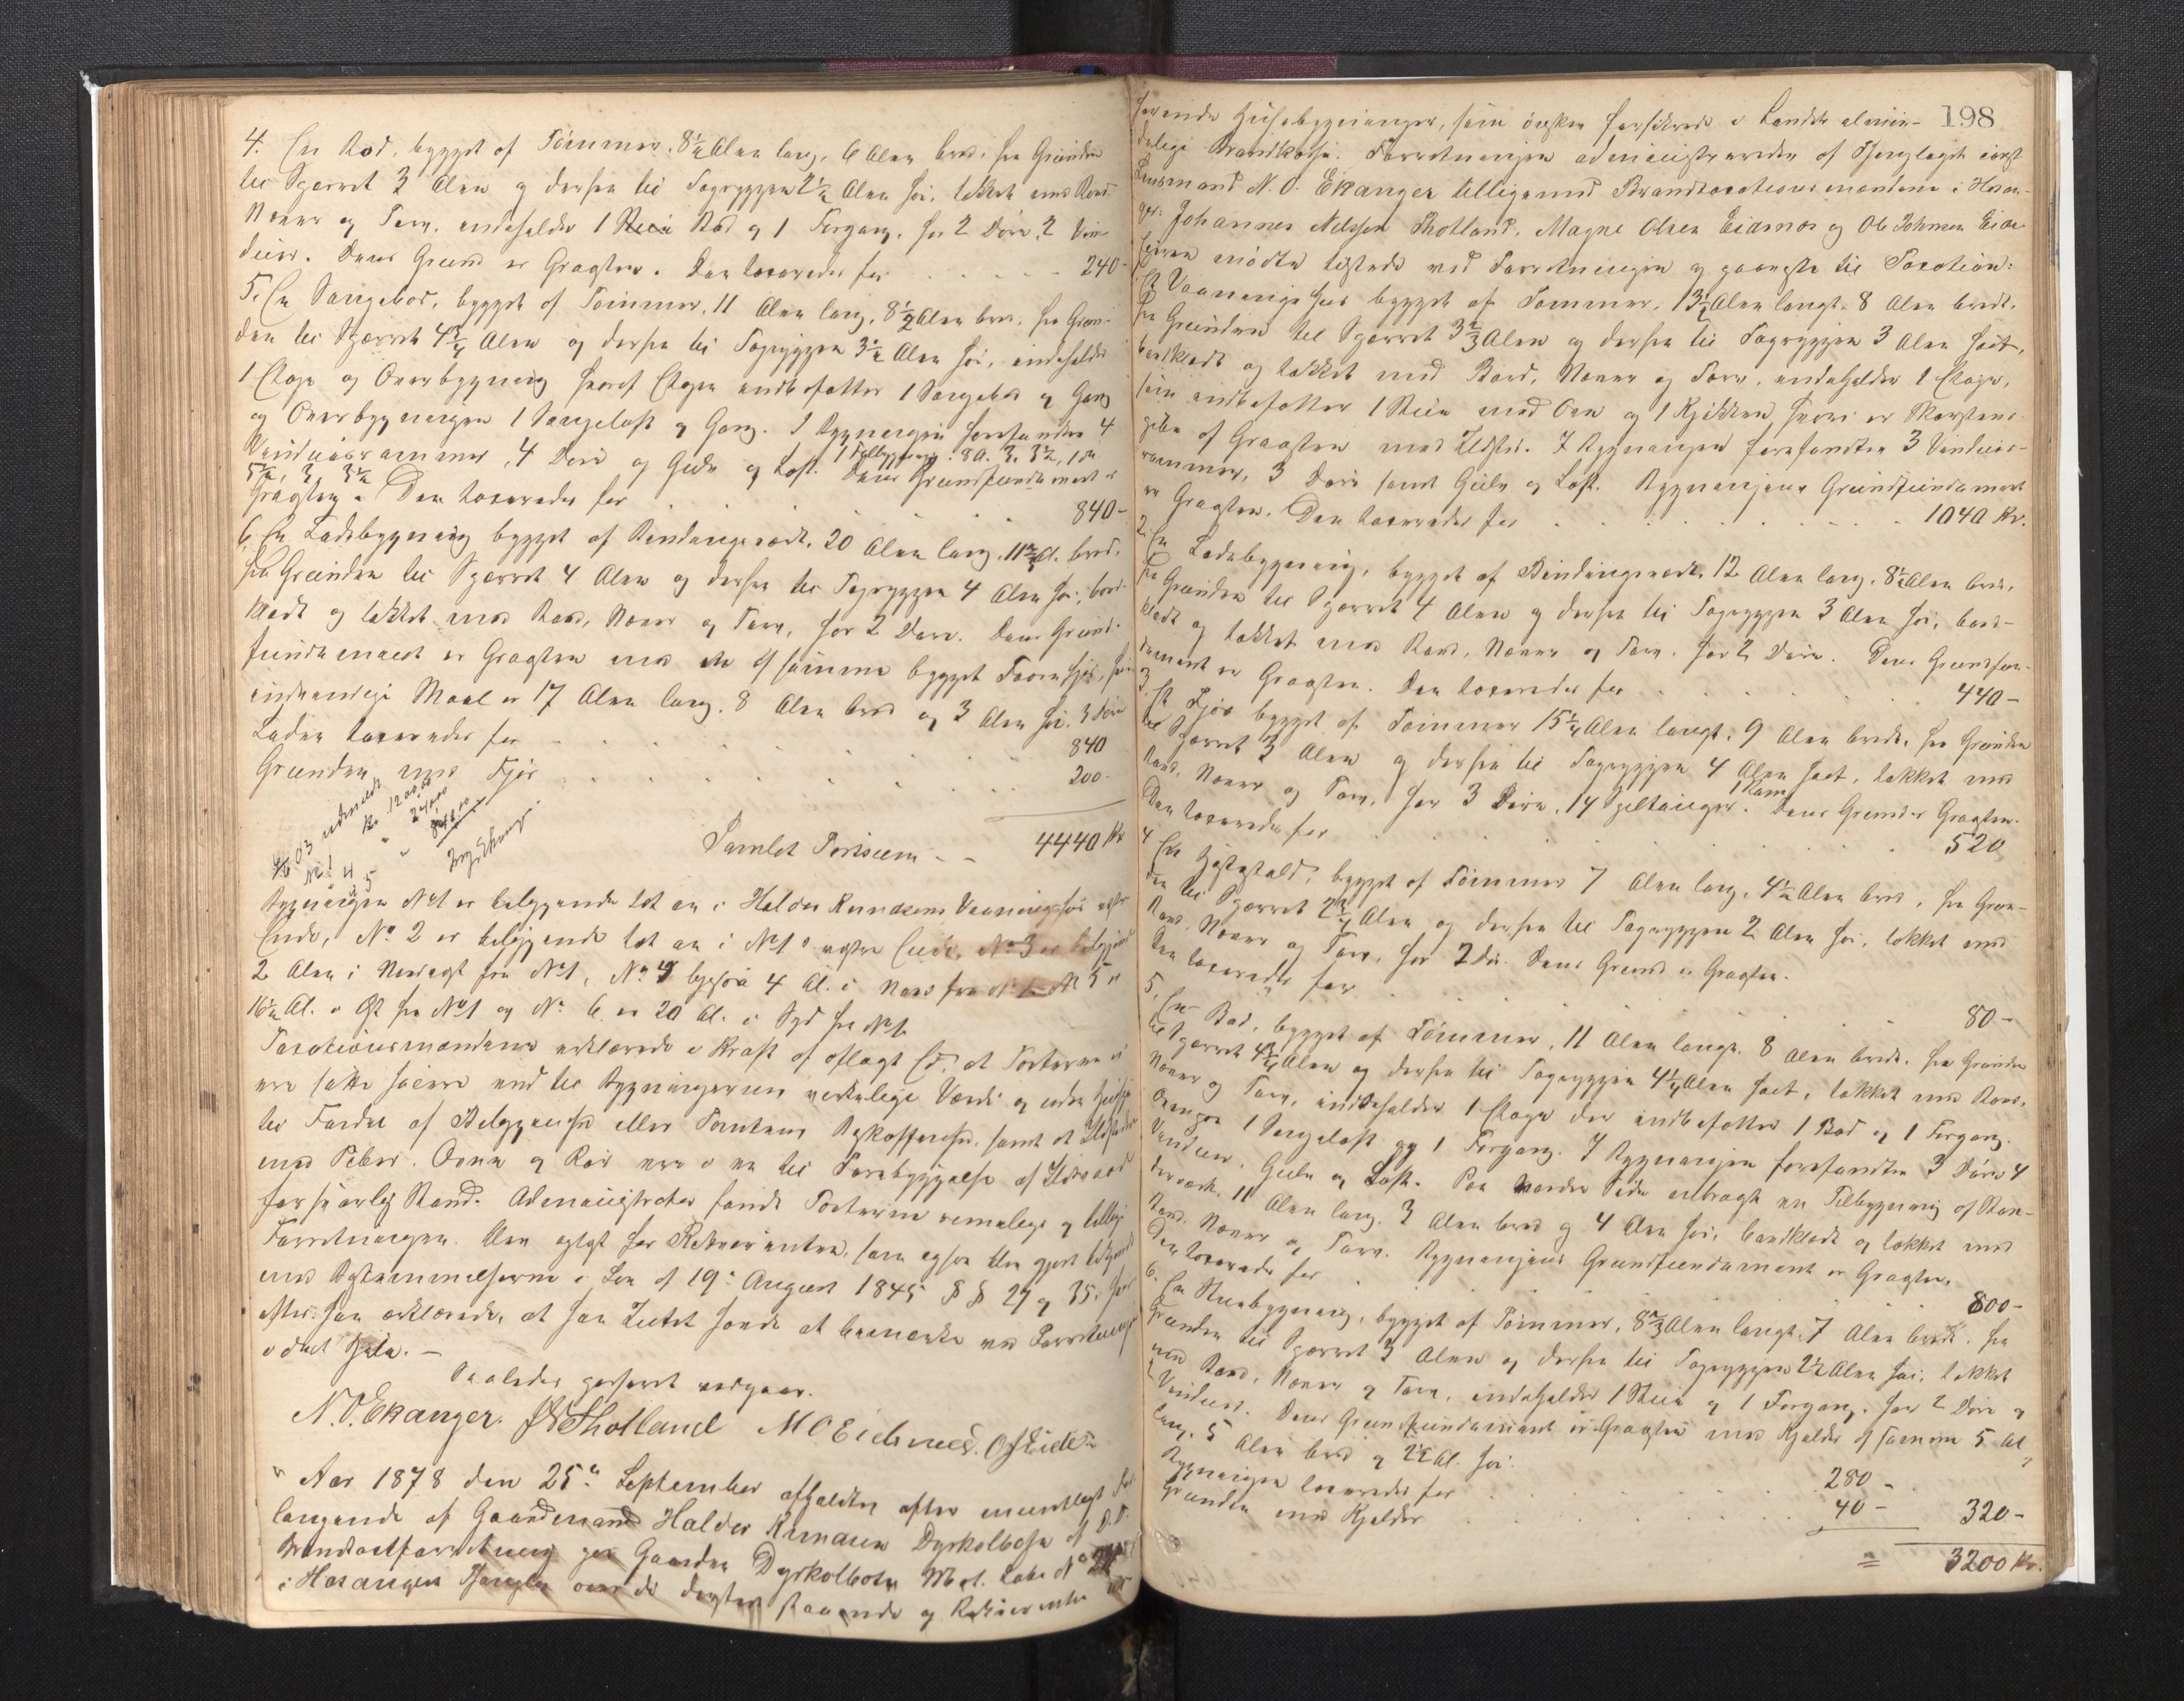 4. En Bod, bygget af Tømmer, 8½ Alen lang, 6 Alen bred, fra Grunden
til Sperret 3 Alen og derfra til Tagryggen 2½ Alen høi, tækket med Bord,
Næver og Tørv, indeholder 1 Bod og 1 Forgang, har 2 Døre, 2 Vin-
duer. Dens Grund er Graasten. Den taxeredes for 240-
5. En Sengebod, bygget af Tømmer, 11 Alen lang, 8½ Alen bred, fra Grun-
den til Sperret 4¾ Alen og derfra til Tagryggen 3½ Alen høi, indeholder
1 Etage og Overbygning hvoraf Etagen indbefatter 1 Sengebod og Gang
og Overbygningen 1 Sengeloft og Gang. I Bygningen forefandtes 4
Vinduesrammer, 4 Døre og Gulv og Loft. Dens Grundfundament er
1 Tilbygning: 8 A. 3, 3½, 1 do
5½, 3, 3½
Graasten. Den taxeredes for 840-
6. En Ladebygning bygget af Bindingsværk, 20 Alen lang, 11¾ Al. bred,
fra Grunden til Sperret 4 Alen og derfra til Tagryggen 4 Alen høi, bord-
klædt og tækket med Bord, Næver og Tørv, har 2 Døre. Dens Grund-
fundament er Graasten med et af samme bygget Fjøs, hvis
indvendige Maal er 17 Alen lang, 8 Alen bred og 3 Alen høi. 3 Døre
Laden taxeredes for 840
Grunden med Fjøs 200-
Samlet Taxtsum - - 4440 Kr
Bygningen No 1 er beliggende tæt an i Haldor Knudsens Vaaningshus vestre
Ende, No 2 er beliggende tæt an i No 1s vestre Ende, No 3 er beliggende
2 Alen i Nordvest fra No 1, No 4 4 Al. i Nord fra No 1, No 5 er
16½ Al. i Øst fra No 1 og No 6 er 20 Al. i Syd fra No 1.
Taxationsmændene erklærede i Kraft af aflagt Ed, at Taxterne ei
ere satte høiere end til Bygningernes virkelige Værdi og uden Hensyn
til Fordel af Beliggenhed eller Tomtens Beskaffenhed, samt at Ildsteder
med Piber, Ovne og Rør ere i en til Forebyggelse af Ildsvaade
forsvarlig Stand. Administrator fandt Taxterne rimelige og
Forretningen. Den oplæst for Rekvirenten, som ogsaa blev gjort bekjendt
med Bestemmelserne i Lov af 19de August 1845 §§ 29 og 35, hvor-
efter han erklærede, at han Intet havde at bemærke ved Forretningen
i det Hele. -
Saaledes passeret vedgaaes.
N. O. Ekanger. J N Shotland M O Eidsnes. O J Eide
Aar 1878 den 25de September afholdtes efter mundtligt For-
langende af Gaardmand Haldor Knudsen Dyrkolbotn et O. T.
Brandtaxtforretning paa Gaarden Dyrkolbotn Mat. Løbe No
i Hosanger Thinglag over de derpaa staaende og Rekvirenten
198
tilhørende Husebygninger, som ønskes forsikrede i Landets almin-
delige Brandkasse. Forretningen administreredes af Thinglagets const
Lensmand N. O. Ekanger tilligemed Brandtaxationsmændene i Hosan-
ger: Johannes Nilssen Shotland, Magne Olsen Eidsnes og Ole Johnsen Eide
hvilke mødte tilstede ved Forretningen og gaaes til Taxation:
Et Vaaningshus bygget af Tømmer, 13½ Alen langt, 8 Alen bredt,
fra Grunden til Sperret 3⅔ Alen og derfra til Tagryggen 3 Alen høit,
bordklædt og tækket med Bord, Næver og Tørv, indeholder 1 Etage,
som indbefatter 1 Stue med Ovn og 1 Kjøkken hvori er Skorstens-
pibe af Graasten med Ildsted. I Bygningen forefandtes 3 Vindues-
rammer, 3 Døre samt Gulv og Loft. Bygningens Grundfundament
er Graasten. Den taxeredes for 1040 Kr.
2. En Ladebygning, bygget af Bindingsværk, 12 Alen lang, 8½ Alen bred,
fra Grunden til Sperret 4 Alen og derfra til Tagryggen 3 Alen høi, bord-
klædt og tækket med Bord, Næver og Tørv. Har 2 Døre. Dens Grundfun-
dament er Graasten. Den taxeredes for 440-
3 Et Fjøs bygget af Tømmer 15¼ Alen langt, 9 Alen bredt, fra Grunden
til Sperret 3 Alen og derfra til Tagryggen 4 Alen høit, tækket med
Bord, Næver og Tørv, har 3 Døre, 14 Dens Grund er Graasten.
Den taxeredes for 520
4 En Hestestald, bygget af Tømmer 7 Alen lang, 4½ Alen bred, fra Grun-
den til Sperret 2¾ Alen og derfra til Tagryggen 2 Alen høi, tækket med
Bord, Næver og Tørv, har 2 Dør. Dens Grund er Graasten.
Den taxeredes for 80-
5. En Bod, bygget af Tømmer, 11 Alen langt, 8 Alen bredt, fra Grunden
til Sperret 4¾ Alen og derfra til Tagryggen 4¼ Alen høit, tækket med Bord,
Næver og Tørv, indeholder 1 Etage der indbefatter 1 Bod og 1 Forgang.
Ovenpaa 1 Sengeloft og 1 Forgang. I Bygningen forefandtes 3 Døre 4
Vinduer, Gulv og Loft. Paa nordre Side anbragt en Tilbygning af Stav-
værk, 11 Alen lang, 3 Alen bred og 4 Alen høi, bordklædt og tækket med
Bord, Næver og Tørv. Bygningens Grundfundament er Graasten.
Den taxeredes for 800-
6. En Stuebygning, bygget af Tømmer, 8⅔ Alen langt, 7 Alen bredt, fra
Grunden til Sperret 3 Alen og derfra til Tagryggen 2½ Alen høi, tækket
med Bord, Næver og Tørv, indeholder 1 Stue og 1 Forgang, har 2 Døre og
Vinduer. Dens Grundfundament er Graasten med Kjelder af samme 5 Al
lang, 5 Alen bred og 2½ Al. høi.
Bygningen taxeredes for 280-
Grunden med Kjelder 40- 320-
= 3200 Kr.